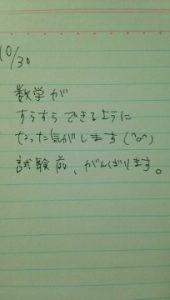 10/30
数学が
すらすらできるように
なった気がします(^o^)
試験前、がんばります。